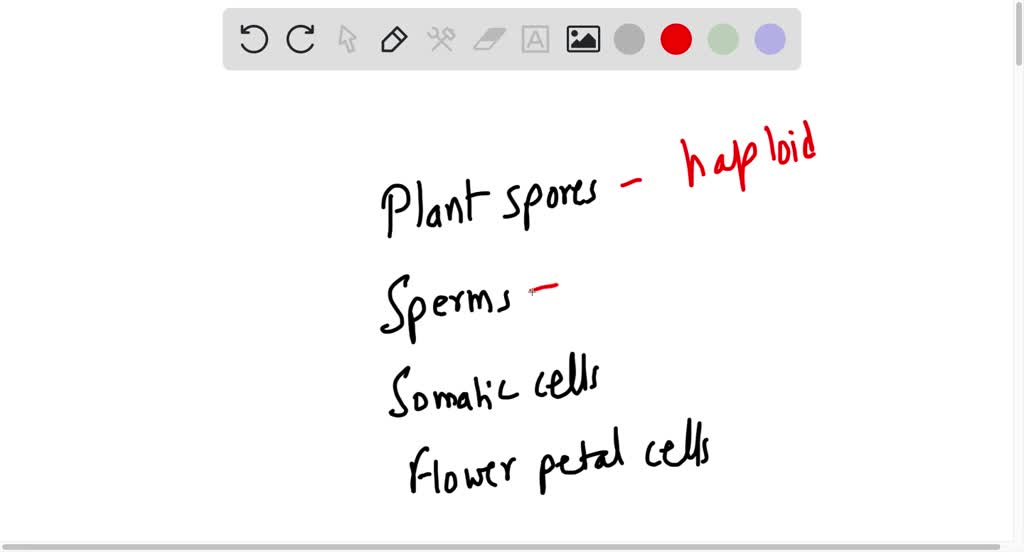 A
Plant spores - haploid
Sperms -
Somatic cells
Flower petal cells